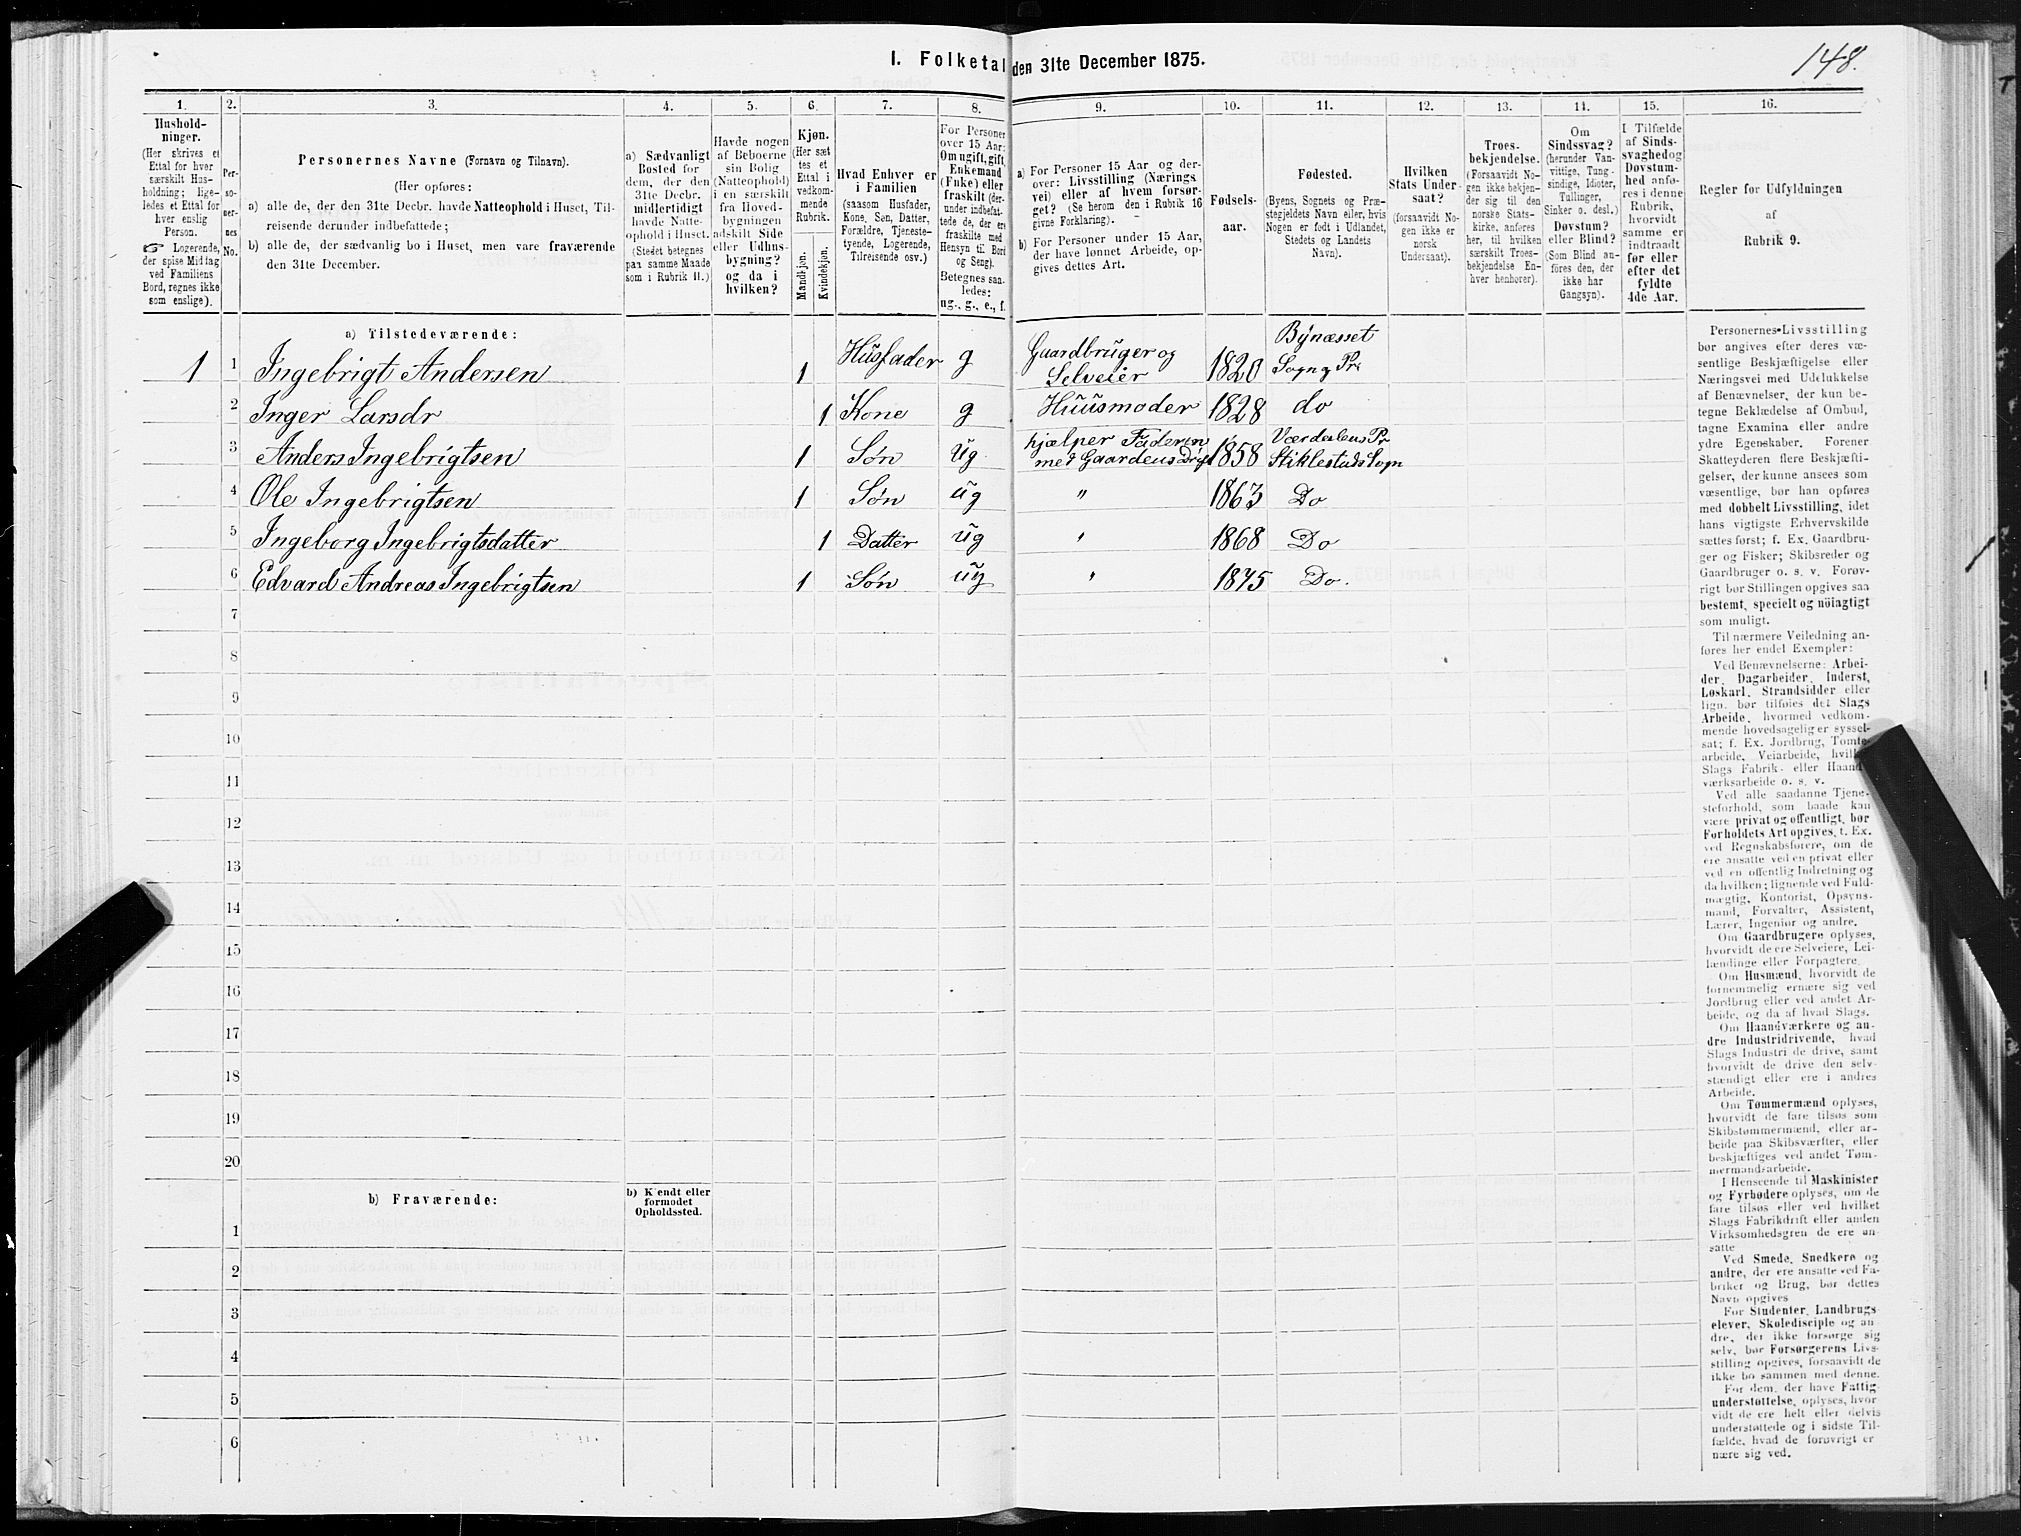 I. Folketal den 31te December 1875.
148.
1.
Hushold-
ninger.
(Her skrives et
Ettal for hver
særskilt Hus-
holdning; lige-
ledes et Ettal for
hver enslig
Person.
☞ Logerende,
der spise Middag
ved Familiens
Bord, regnes ikke
som enslige).
2.
Per-
so-
ner-
nes
No.
3.
Personernes Navne (Fornavn og Tilnavn).
(Her opføres:
a) alle de, der den 31te Decbr. havde Natteophold i Huset, Til-
reisende derunder indbefattede;
b) alle de, der sædvanlig bo i Huset, men vare fraværende
den 31te December.
4.
a) Sædvanligt
Bosted for
dem, der den
31te Decbr.
midlertidigt
havde Natte-
ophold i Huset.
(Stedet betegnes
paa samme Maade
som i Rubrik II.)
5.
Havde nogen
af Beboerne
sin Bolig
(Natteophold)
i en særskilt
fra Hoved-
bygningen
adskilt Side
eller Udhus-
bygning?
og da i
hvilken?
6.
Kjøn.
(Her sæt
tes et
Ettal i
vedkom-
mende
Rubrik.
Mandkjøn.
Kvindekjøn.
7.
Hvad Enhver er
i Familien
(saasom Husfader,
Kone, Søn, Datter,
Forældre, Tjeneste-
tyende, Logerende,
Tilreisende osv.)
8.
For Personer
over 15 Aar:
Om ugift, gift,
Enkemand
(Enke) eller
fraskilt (der-
under indbefat-
tede de, der ere
fraskilte med
Hensyn til Bord
og Seng).
Betegnes saa-
ledes:
ug., g., e., f.
9.
a) For Personer 15 Aar og der-
over: Livsstilling (Nærings
vei) eller af hvem forsør-
get? (Se herom den i Rubrik 16
givne Forklaring).
b) For Personer under 15 Aar,
der have lønnet Arbeide, op-
gives dettes Art.
10.
Fødsels-
aar.
11.
Fødested.
(Byens, Sognets og Præ-
stegjeldets Navn eller, hvis
Nogen er født i Udlandet,
Stedets og Landets
Navn).
12.
Hvilken
Stats Under-
saat?
(forsaavidt No-
gen ikke er
norsk
Undersaat).
13.
Troes-
bekjendelse.
(Forsaavidt No-
gen ikke bekjen-
der sig til den
norske Stats-
kirke, anføres
her, til hvilken
særskilt Troes-
bekjendelse En-
hver henhører).
14.
Om
Sindssvag?
(herunder Van-
vittige, Tung-
sindige, Idioter,
Tullinger,
Sinker o. desl.)
Døvstum?
eller Blind?
(Som Blind an-
føres den, der
ikke har
Gangsyn).
15.
I Tilfælde
af Sinds-
svaghed og
Døvstum-
hed anfø-
res i denne
Rubrik,
hvorvidt
samme er
indtraadt
før eller
efter det
fyldte
4de Aar.
16.
Regler for Udfyldningen
af
Rubrik 9.
a) Tilstedeværende:
1 1 Ingebrigt Andersen 1 Husfader g Gaardbruger og Selveier 1820 Bynæsset Sogn & Pr.
2 Inger Larsdr 1 Kone g Huusmoder 1828 do
3 Anders Ingebrigtsen 1 Søn ug hjælper Faderen med Gaardens Drift 1858 Værdalens Pr Stiklestad Sogn
4 Ole Ingebrigtsen 1 Søn ug " 1863 Do
5 Ingeborg Ingebrigtsdatter 1 Datter ug " 1868 Do
6 Edvard Andreas Ingebrigtsen 1 Søn ug " 1875 Do.
7
8
9
10
11
12
13
14
15
16
17
18
19
20
b) Fraværende:
b) Kjendt eller
formodet
Opholdssted.
1
2
3
4
5
6
Personernes Livsstilling
bør angives efter deres væ-
sentlige Beskjæftigelse eller
Næringsvei med Udelukkelse
af Benævnelser, der kun be-
tegne Beklædelse af Ombud,
tagne Examina eller andre
ydre Egenskaber. Forener
Skatteyderen flere Beskjæfti-
gelser, der kunne ansees som
væsentlige, bør han opføres
med dobbelt Livsstilling, idet
hans vigtigste Erhvervskilde
sættes først; f. Ex. Gaardbru-
ger og Fisker; Skibsreder og
Gaardbruger o. s. v. Forøv-
rigt bør Stillingen opgives saa
bestemt, specielt og nöiagtigt
som muligt.
Til nærmere Veiledning an-
føres her endel Exempler:
Ved Benævnelserne: Arbei-
der, Dagarbeider, Inderst,
Løskarl, Strandsidder eller
lign. bør tilføies det Slags
Arbeide, hvormed vedkom-
mende hovedsagelig er syssel-
sat; f. Ex. Jordbrug, Tomte-
arbeide, Veiarbeide, hvilket
Slags Fabrik- eller Haand-
værksarbeide o. s. v.
Ved alle saadanne Tjene-
steforhold, som baade kan
være privat og offentligt, bør
Forholdets Art opgives, t. Ex.
ved Regnskabsførere, om de
ere ansatte ved en privat eller
ved en offentlig Indretning og
da hvilken; lignende ved Fuld-
mægtig, Kontorist, Opsyns-
mand, Forvalter, Assistent,
Lærer, Ingeniør og andre.
Om Gaardbrugere oplyses,
hvorvidt de ere Selveiere, Lei-
lændinge eller Forpagtere.
Om Husmænd, hvorvidt de
fornemmelig ernære sig ved
Jordbrug eller ved andet Ar-
beide, og da af hvad Slags.
Om Haandværkere og an-
dre Industridrivende, hvad
Slags Industri de drive, samt
hvorvidt de drive den selv-
stændigt eller ere i andres
Arbeide.
Om Tømmermænd oplyses,
hvorvidt de fare tilsøs som
Skibstømmermænd, eller ar-
beide paa Skibsværfter, eller
beskjæftiges ved andet Tøm-
mermandsarbeide.
I Henseende til Maskinister
og Fyrbødere oplyses, om de
fare tilsøs eller ved hvilket
Slags Fabrikdrift eller anden
Virksomhedsgren de ere an-
satte
Ved Smede, Snedkere og
andre, der ere ansatte ved Fa-
briker og Brug, bør dettes
Navn opgives
For Studenter, Landbrugs-
elever, Skoledisciple og an
dre, der ikke forsørge sig
selv, bør Forsørgerens Livs-
stilling opgives, forsaavidt de
ikke bo sammen med denne.
For dem, der have Fattig-
understøttelse, oplyses, hvor-
vidt de ere helt eller delvis
understøttede og i sidste Til-
fælde, hvad de forøvrigt er
nære sig ved.